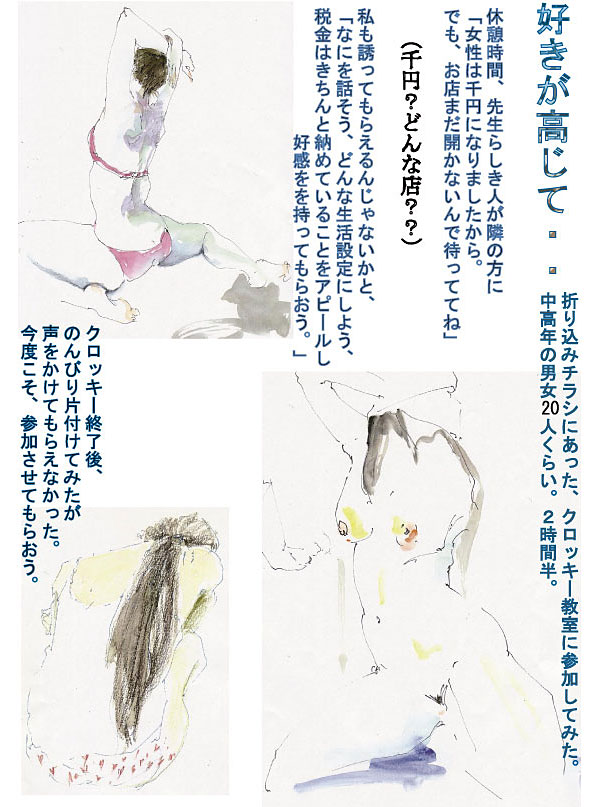 好きが高じて・・
折り込みチラシにあった、クロッキー教室に参加してみた。
中高年の男女20人くらい。２時間半。
休憩時間、先生らしき人が隣の方に
「女性は千円になりましたから。
でも、お店まだ開かないんで待っててね」
（千円？どんな店？？）
私も誘ってもらえるんじゃないかと、
「なにを話そう、どんな生活設定にしよう、
税金はきちんと納めていることをアピールし
好感をを持ってもらおう。」
クロッキー終了後、
のんびり片付けてみたが
声をかけてもらえなかった。
今度こそ、参加させてもらおう。